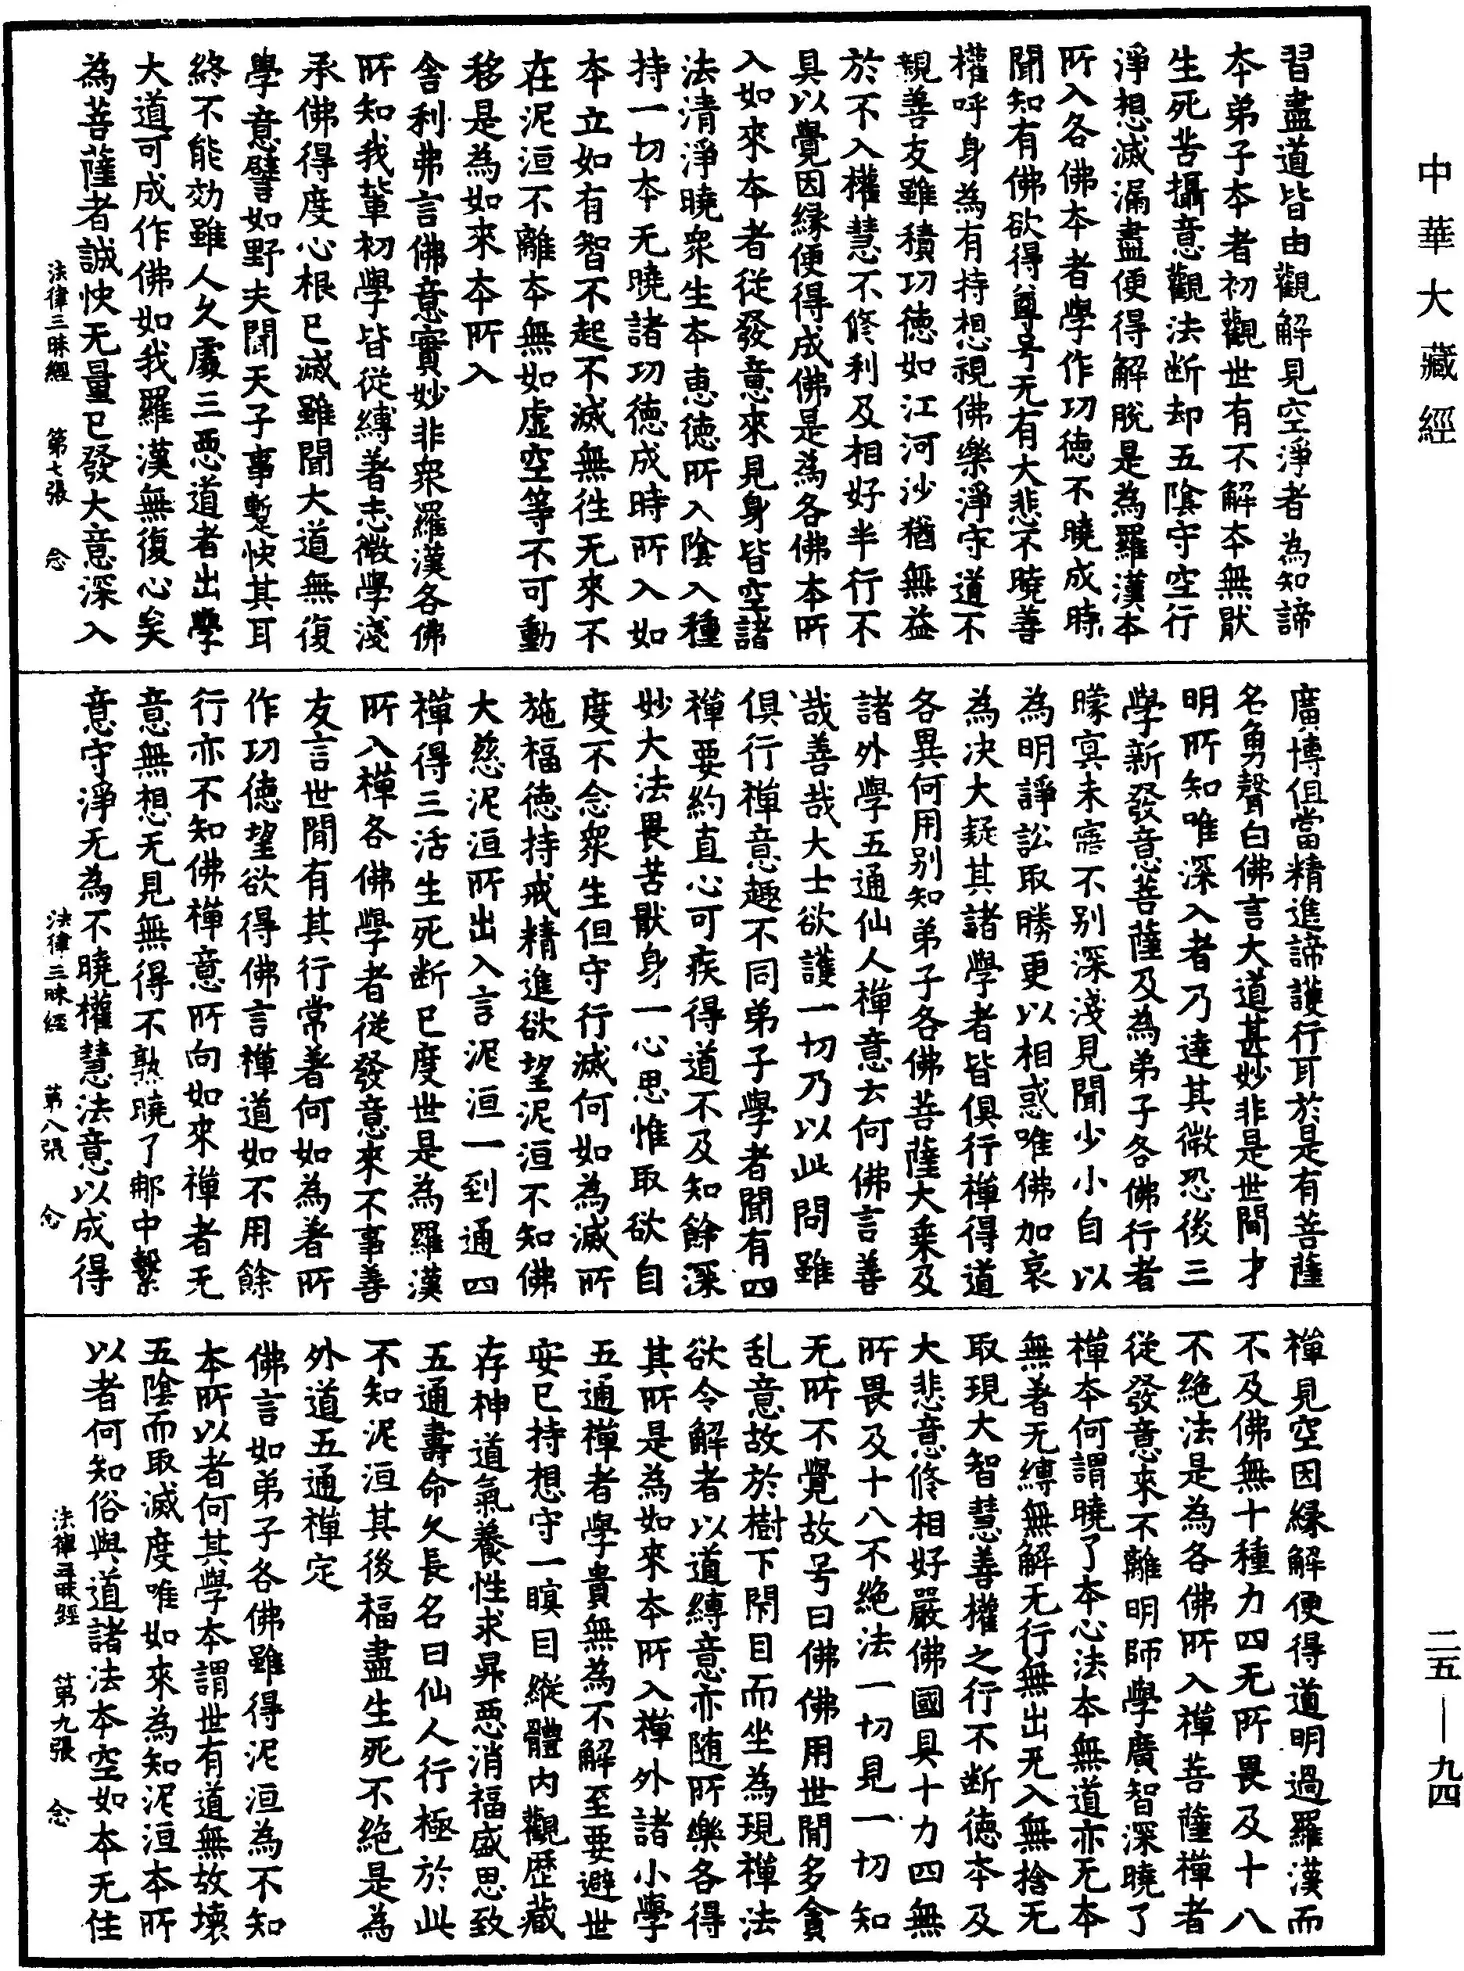 中華大藏經
習盡道皆由觀解見空淨者為知諦
本弟子本者初觀世有不解本無猒
生死苦攝意觀法断却五陰守空行
淨想滅漏盡便得解脫是為羅漢本
所入各佛本者學作功德不曉成時
聞知有佛欲得尊号无有大悲不曉善
權呼身為有持想視佛樂淨守道不
親善友雖積功德如江河沙猶無益
於不入權慧不修利及相好半行不
具以覺因緣便得成佛是為各佛本所
入如來本者從發意來見身皆空諸
法清淨曉衆生本恵德所入陰入種
持一切本无曉諸功德成時所入如
本立如有智不起不滅無往无來不
在泥洹不離本無如虛空等不可動
移是為如來本所入
舍利弗言佛意實妙非衆羅漢各佛
所知我輩初學皆從縛著志微學淺
承佛得度心根已滅雖聞大道無復
學意譬如野夫聞天子事暫快其耳
終不能効雖人久處三惡道者出學
大道可成作佛如我羅漢無復心矣
為菩薩者誠快无量已發大意深入
法律三昧經　第七張　念
廣博但當精進諦護行耳於是有菩薩
名勇聲白佛言大道甚妙非是世間才
明所知唯深入者乃達其微恐後三
學新發意菩薩及為弟子各佛行者
矇㝠未寤不别深淺見聞少小自以
為明諍訟取勝更以相惑唯佛加哀
為決大疑其諸學者皆俱行禪得道
各異何用别知弟子各佛菩薩大乘及
諸外學五通仙人禪意云何佛言善
哉善哉大士欲護一切乃以此問雖
俱行禪意趣不同弟子學者聞有四
禪要約直心可疾得道不及知餘深
妙大法畏苦猒身一心思惟取欲自
度不念衆生但守行滅何如為滅所
施福德持戒精進欲望泥洹不知佛
大慈泥洹所出入言泥洹一到通四
禪得三活生死断已度世是為羅漢
所入禪各佛學者從發意來不事善
友言世間有其行常著何如為著所
作功德望欲得佛言禪道如不用餘
行亦不知佛禪意所向如來禪者无
意無想无見無得不熟曉了郍中繫
意守淨无為不曉權慧法意以成得
法律三昧經　第八張　念
禪見空因緣解便得道明過羅漢而
不及佛無十種力四无所畏及十八
不絕法是為各佛所入禪菩薩禪者
從發意來不離明師學廣智深曉了
禪本何謂曉了本心法本無道亦无本
無著无縛無解无行無出无入無捨无
取現大智慧善權之行不断德本及
大悲意修相好嚴佛國具十力四無
所畏及十八不絕法一切見一切知
无所不覺故号曰佛佛用世間多貪
乱意故於樹下閇目而坐為現禪法
欲令解者以道縛意亦随所樂各得
其所是為如來本所入禪外諸小學
五通禪者學貴無為不解至要避世
安已持想守一瞑目縱體内觀歷藏
存神道氣養性求昇惡消福盛思致
五通壽命久長名曰仙人行極於此
不知泥洹其後福盡生死不絕是為
外道五通禪定
佛言如弟子各佛雖得泥洹為不知
本所以者何其學本謂世有道無故壞
五陰而取滅度唯如來為知泥洹本所
以者何知俗與道諸法本空如本无住
法律三昧經　第九張　念
二五—九四